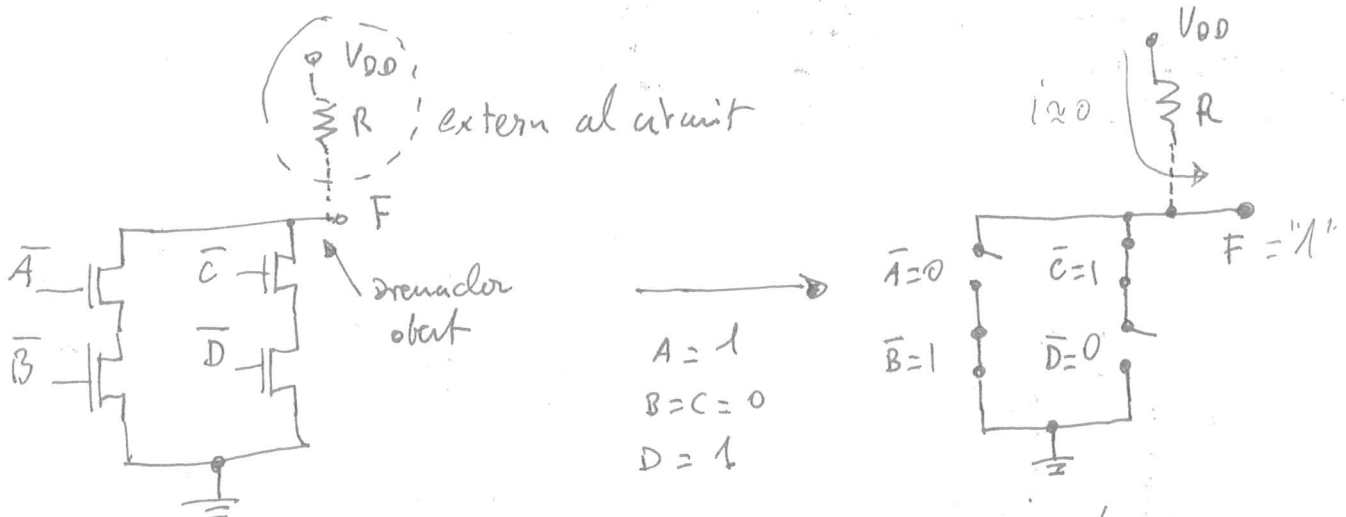 V_DD
R
extern al circuit
F
A̅
B̅
C̅
D̅
Drenador
obert
A = 1
B = C = 0
D = 1
V_DD
i≈0
R
A̅=0
B̅=1
C̅=1
D̅=0
F = "1"